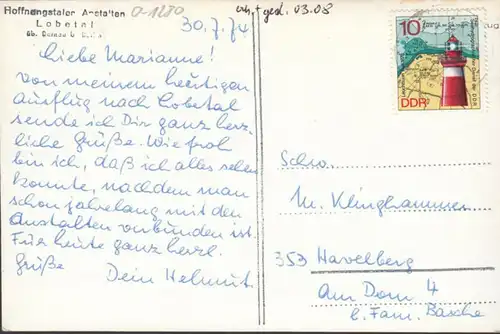 Hoffnungstaler Anstalten
Lobetal
üb. Bernau b. Berlin
0-1280
erh. + ged. 03.08
30.7.74
Liebe Marianne!
Von meinem heutigen
Ausflug nach Lobetal
sende ich Dir ganz herz-
liche Grüße. Wie froh
bin ich, daß ich alles sehen
konnte, nachdem man
schon jahrelang mit den
Anstalten verbunden ist.
Für heute ganz herzl.
Grüße
Dein Helmut
10
DDR
Schw.
M. Klinghammer
353 Havelberg
Am Dom 4
b. Fam. Basche